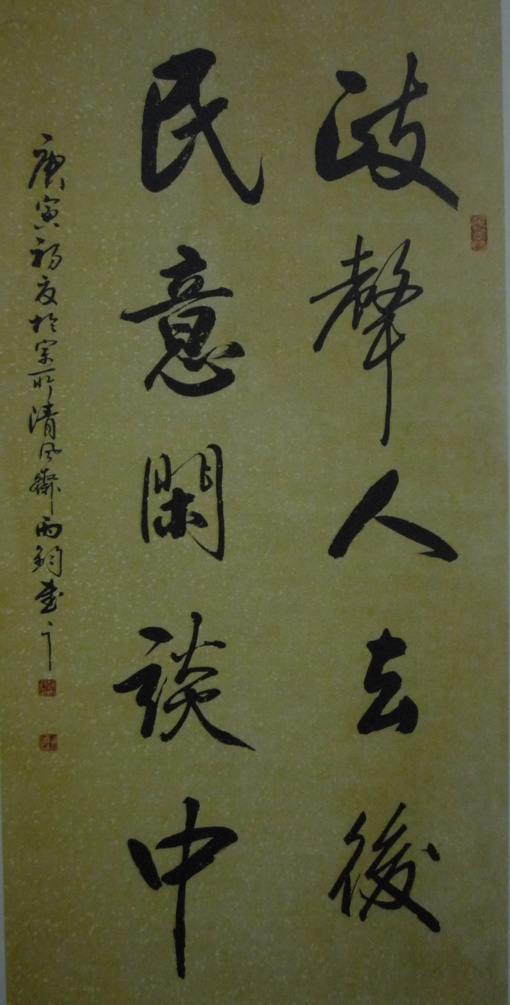 政聲人去後
民意閑談中
庚寅初夏於京西清風齋雨鈞書